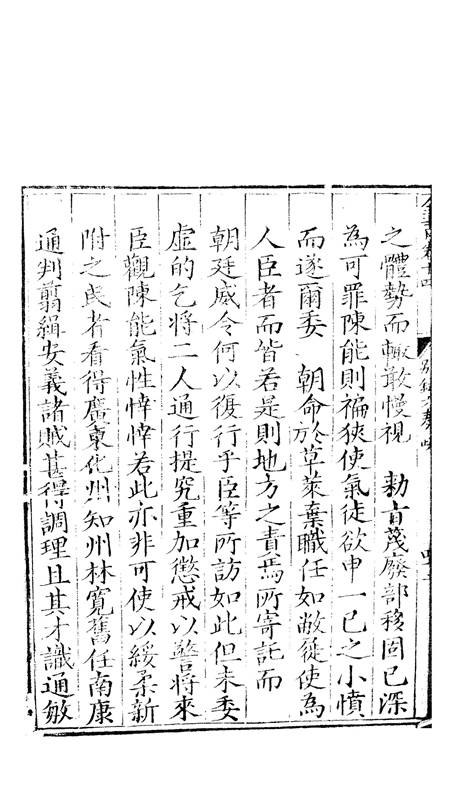 之體勢而輙敢慢視　勅㫖蔑廢部移固已深
為可罪陳能則褊狹使氣徒欲申一已之小憤
而遂爾委　朝命於草萊棄職任如敝蓰使為
人臣者而皆若是則地方之責焉所寄託而
朝廷威令何以復行乎臣等所訪如此但未委
虛的乞將二人通行提究重加懲戒以警將來
臣觀陳能氣性悻悻若此亦非可使以綏柔新
附之民者看得廣東化州知州林寬舊任南康
通判翦緝安義諸賊甚得調理且其才識通敏